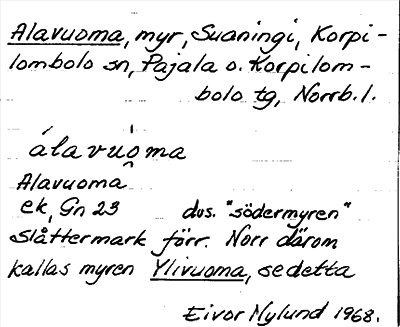 Alavuoma, myr, Suaningi, Korpi-
lombolo sn, Pajala o. Korpilom-
bolo tg, Norrb. l.
álavuo̯ma
Alavuoma
ek, Gn 23 dvs. "södermyren"
Slåttermark förr. Norr därom
kallas myren Ylivuoma, se detta
Eivor Nylund 1968.